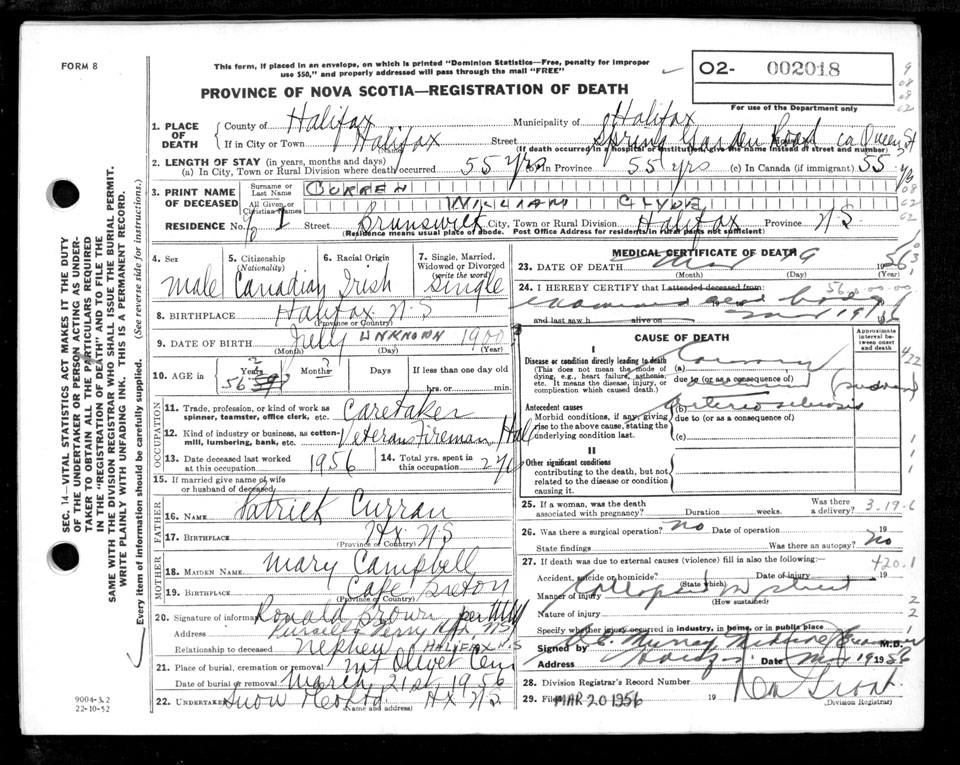 FORM 8
This form, if placed in an envelope, on which is printed "Dominion Statistics—Free, penalty for improper
use $50," and properly addressed will pass through the mail "FREE"
O2- 002018
PROVINCE OF NOVA SCOTIA—REGISTRATION OF DEATH
For use of the Department only
1. PLACE OF DEATH
County of Halifax Municipality of Halifax
If in City or Town Halifax Street Spring Garden Road co Queen St
(If death occurred in a hospital or institution, give the name instead of street and number)
2. LENGTH OF STAY (in years, months and days)
(a) In City, Town or Rural Division where death occurred 55 yrs (b) In Province 55 yrs (c) In Canada (if immigrant) 55
3. PRINT NAME OF DECEASED
Surname or Last Name CURREN
All Given or Christian Names WILLIAM CLYDE
RESIDENCE No. Street Brunswick City, Town or Rural Division Halifax Province N.S.
(Residence means usual place of abode. Post Office Address for residents in rural parts not sufficient)
4. Sex
Male
5. Citizenship (Nationality)
Canadian
6. Racial Origin
Irish
7. Single, Married, Widowed or Divorced (write the word)
Single
8. BIRTHPLACE Halifax N.S
(Province or Country)
9. DATE OF BIRTH July UNKNOWN 1900
(Month) (Day) (Year)
10. AGE in Years Months Days If less than one day old
56 hrs. or min.
OCCUPATION
11. Trade, profession, or kind of work as spinner, teamster, office clerk, etc. Caretaker
12. Kind of industry or business, as cotton-mill, lumbering, bank, etc. Veterans Fireman Hall
13. Date deceased last worked at this occupation 1956
14. Total yrs. spent in this occupation
15. If married give name of wife or husband of deceased
FATHER
16. NAME Patrick Curran
17. BIRTHPLACE Hx N.S
(Province or Country)
MOTHER
18. MAIDEN NAME Mary Campbell
19. BIRTHPLACE Cape Breton
(Province or Country)
20. Signature of informant Ronald Brown per
Address
Relationship to deceased Nephew HALIFAX N.S
21. Place of burial, cremation or removal Mt Olivet Cem
Date of burial or removal March 21st 1956
22. UNDERTAKER Snow & Co Ltd Hx N.S.
(Name and address)
MEDICAL CERTIFICATE OF DEATH
23. DATE OF DEATH Mar 19 1956
(Month) (Day) (Year)
24. I HEREBY CERTIFY that I attended deceased from:
examined dead body
and last saw h alive on Mar 19 1956
CAUSE OF DEATH
Approximate interval between onset and death
I
Disease or condition directly leading to death
(This does not mean the mode of dying, e.g., heart failure, asthenia, etc. It means the disease, injury, or complication which caused death.)
(a) Coronary
due to (or as a consequence of)
Antecedent causes
Morbid conditions, if any, giving rise to the above cause, stating the underlying condition last.
(b) Arteriosclerosis
due to (or as a consequence of)
(c)
II
Other significant conditions
contributing to the death, but not related to the disease or condition causing it.
25. If a woman, was the death associated with pregnancy? Duration weeks. Was there a delivery? 3.19-6
26. Was there a surgical operation? No Date of operation 19
State findings Was there an autopsy? No
27. If death was due to external causes (violence) fill in also the following: 420.1
Accident, suicide or homicide? Date of injury 19
(State which)
Manner of injury Collapsed in street
(How sustained)
Nature of injury
Specify whether injury occurred in industry, in home, or in public place
Signed by Murray Medical Examiner M.D.
Address Halifax Date Mar 19 1956
28. Division Registrar's Record Number
29. Filed MAR 20 1956 19
(Division Registrar)
SEC. 14—VITAL STATISTICS ACT MAKES IT THE DUTY
OF THE UNDERTAKER OR PERSON ACTING AS UNDER-
TAKER TO OBTAIN ALL THE PARTICULARS REQUIRED
IN THE "REGISTRATION OF DEATH" AND TO FILE THE
SAME WITH THE DIVISION REGISTRAR WHO SHALL ISSUE THE BURIAL PERMIT.
WRITE PLAINLY WITH UNFADING INK. THIS IS A PERMANENT RECORD.
Every item of information should be carefully supplied. (See reverse side for instructions.)
9004-3.2
22-10-52